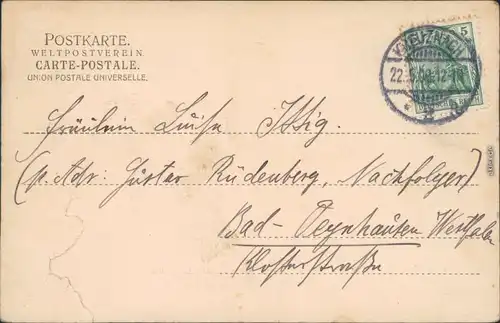 POSTKARTE.
WELTPOSTVEREIN.
CARTE-POSTALE.
UNION POSTALE UNIVERSELLE.
5
KREUZNACH
Fräulein Luise Ittig.
(p. Adr: Gustav Rüdenberg, Nachfolger)
Bad-Oeynhausen Westfalen
Klosterstraße